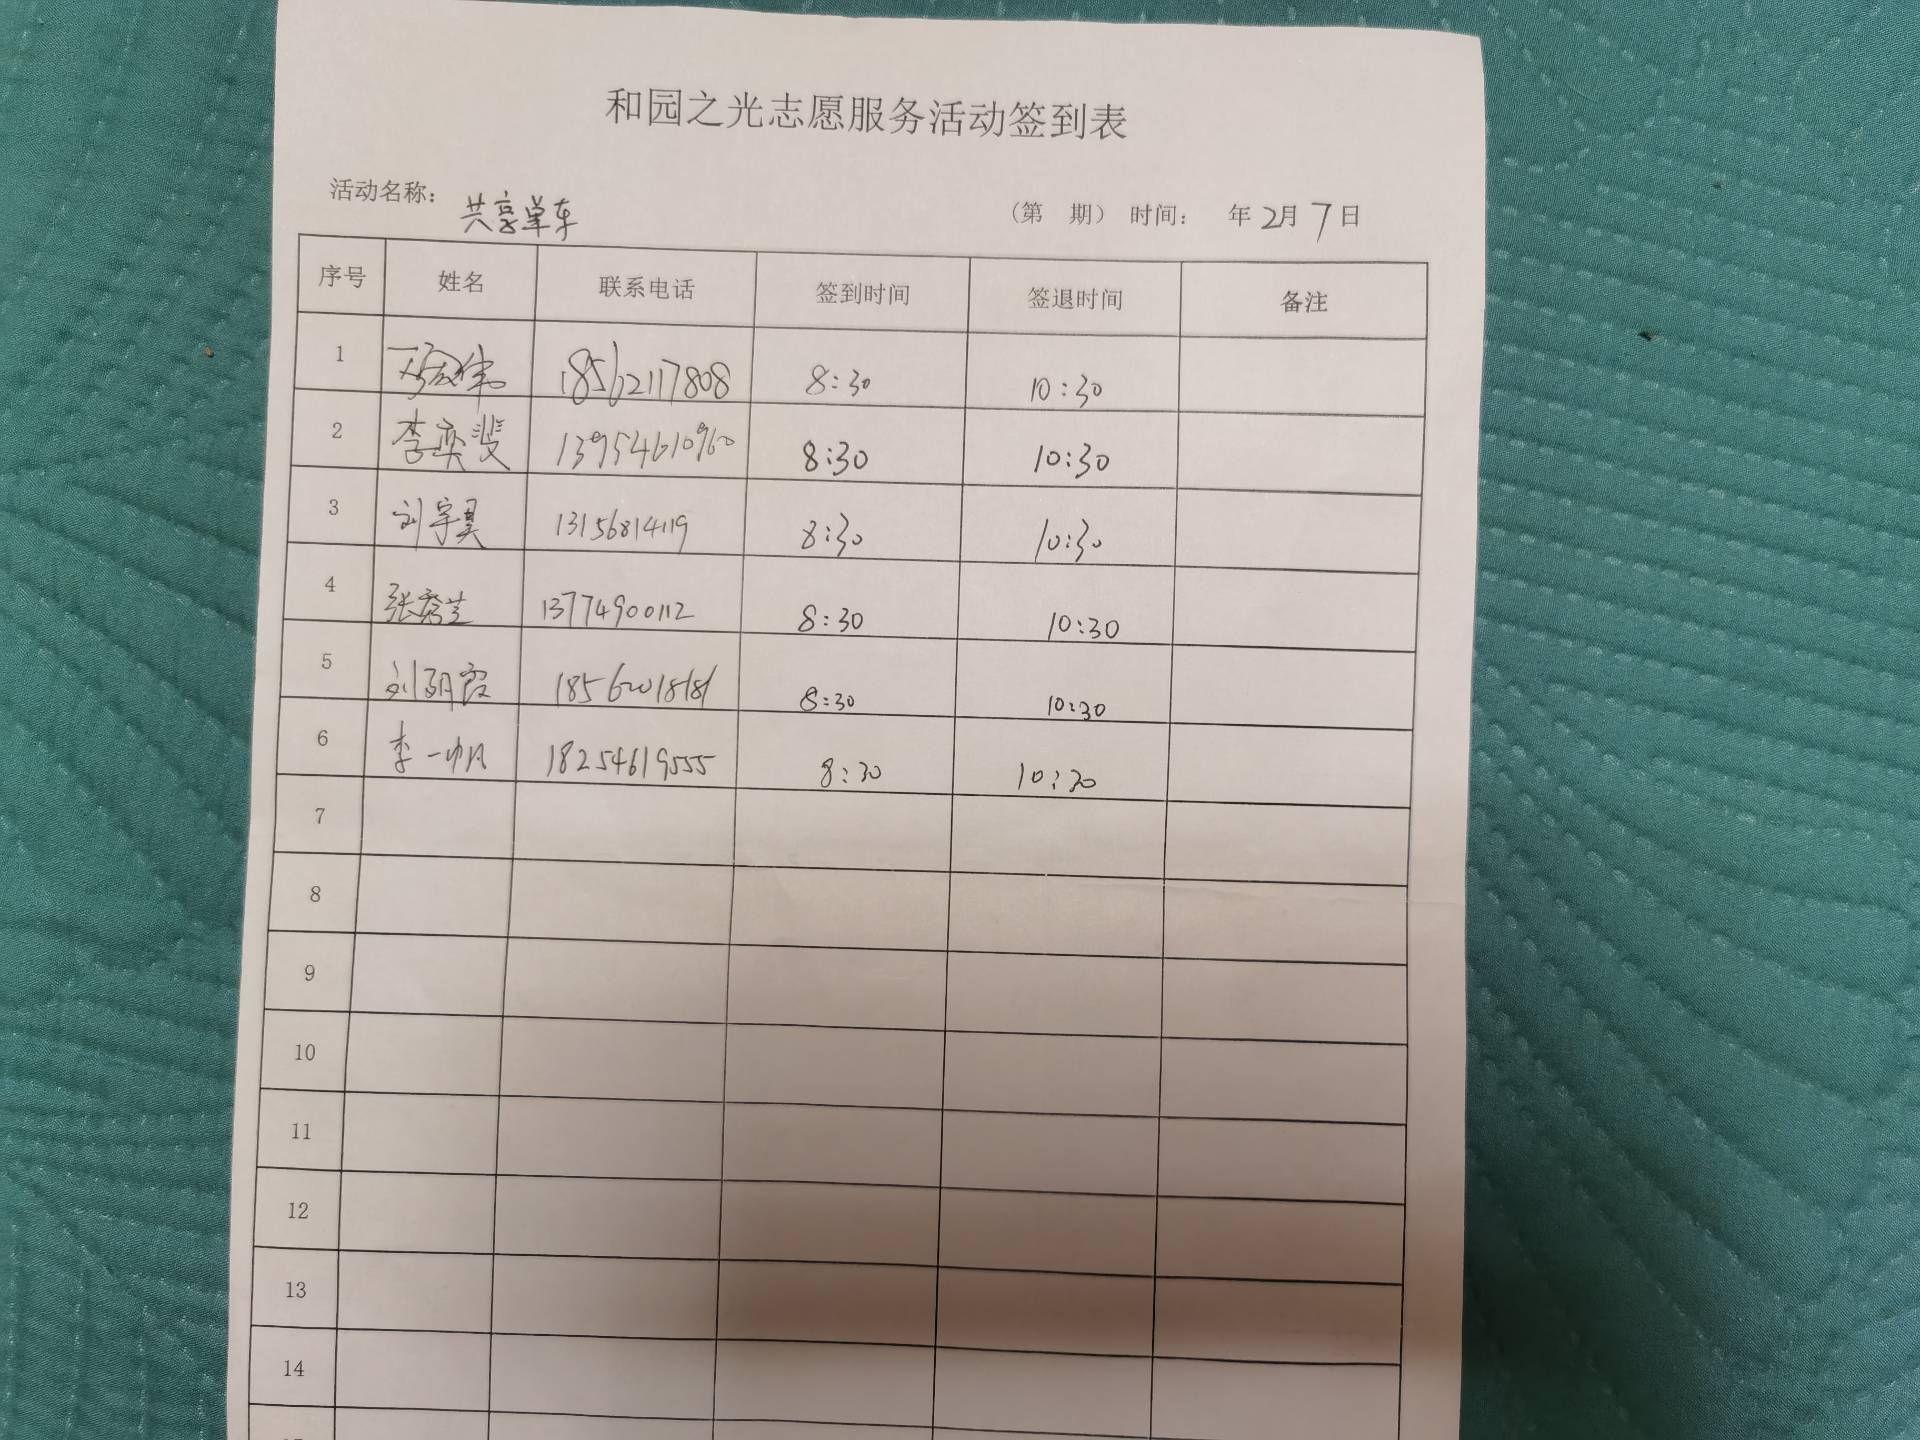 和园之光志愿服务活动签到表
活动名称： 共享单车 （第 期） 时间： 年 2月 7日
序号 姓名 联系电话 签到时间 签退时间 备注
1 18562117808 8:30 10:30
2 李奕斐 13954610960 8:30 10:30
3 刘宇昊 13156814119 8:30 10:30
4 张秀兰 13774900112 8:30 10:30
5 刘明霞 18562018181 8:30 10:30
6 李一帆 18254619555 8:30 10:30
7
8
9
10
11
12
13
14